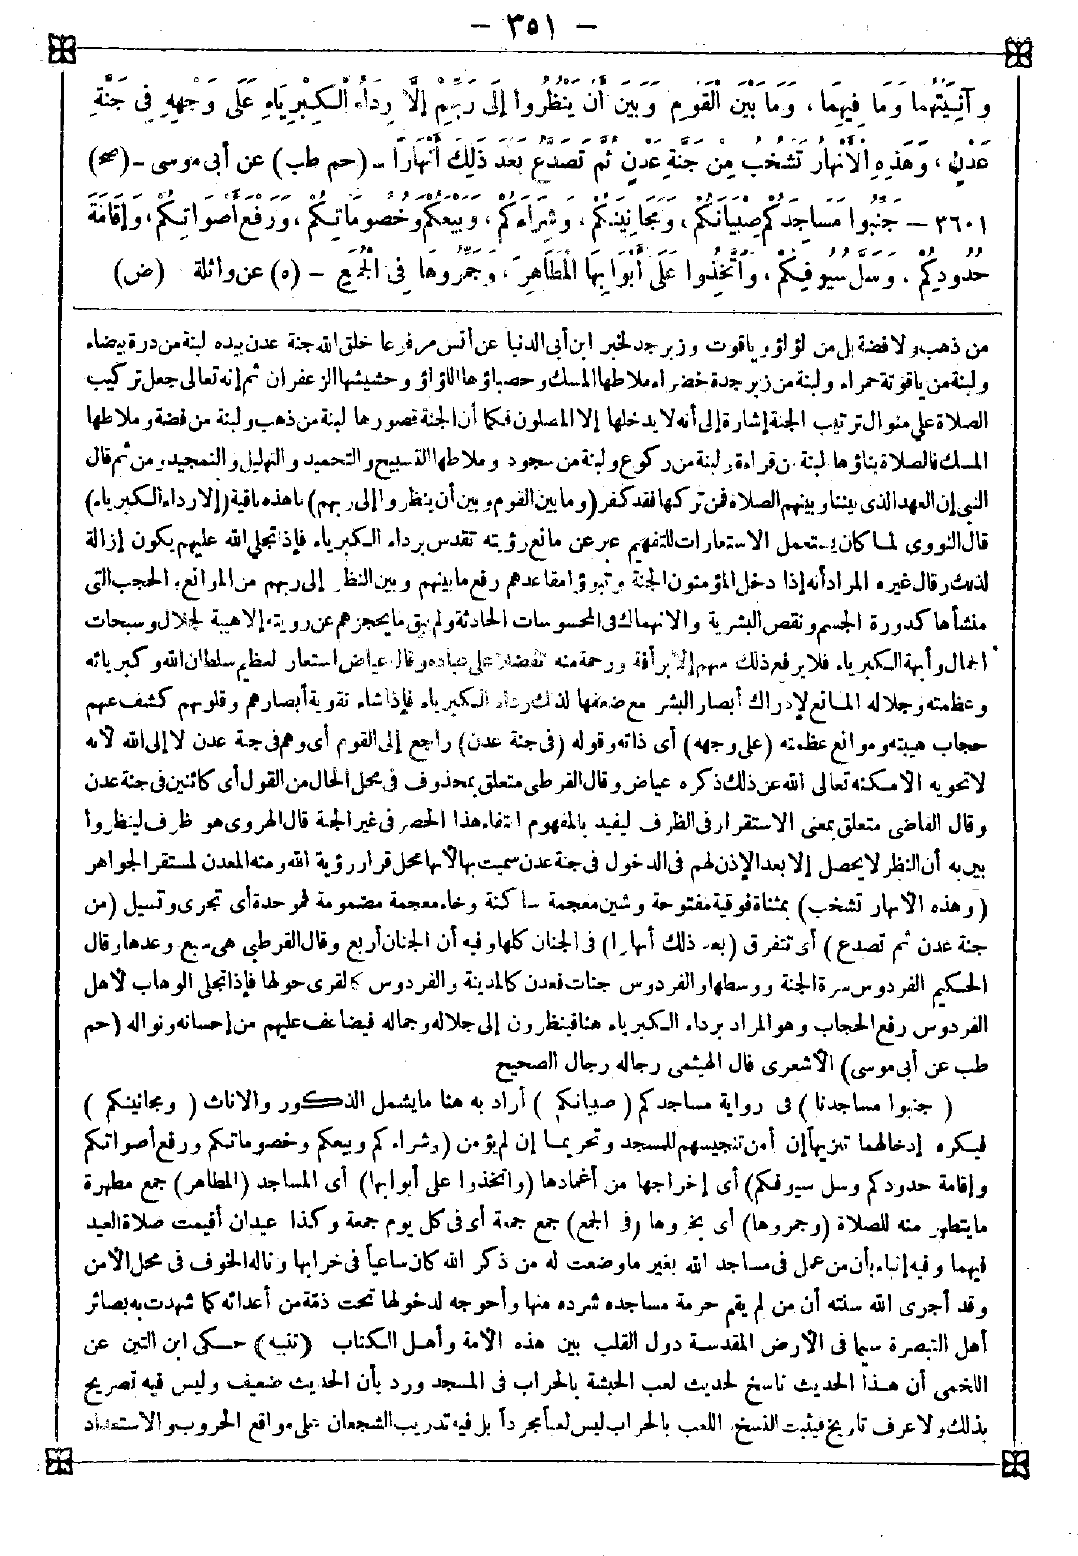 – ٣٥١ –
وَآنِيَتُهُمَا وَمَا فِيهِمَا ، وَمَا بَيْنَ الْقَوْمِ وَبَيْنَ أَنْ يَنْظُرُوا إِلَى رَبِّهِمْ إِلَّا رِدَاءُ الْكِبْرِيَاءِ عَلَى وَجْهِهِ فِي جَنَّةِ
عَدْنٍ ، وَهَذِهِ الْأَنْهَارُ تَشْخُبُ مِنْ جَنَّةِ عَدْنٍ ثُمَّ تَصَدَّعُ بَعْدَ ذَلِكَ أَنْهَارًا ـ (حم طب) عن أبى موسى ـ (صح)
٣٦٠١ – جَنِّبُوا مَسَاجِدَكُمْ صِبْيَانَكُمْ ، وَمَجَانِينَكُمْ ، وَشِرَاءَكُمْ ، وَبَيْعَكُمْ وَخُصُومَاتِكُمْ ، وَرَفْعَ أَصْوَاتِكُمْ ، وَإِقَامَةَ
حُدُودِكُمْ ، وَسَلَّ سُيُوفِكُمْ ، وَاتَّخِذُوا عَلَى أَبْوَابِهَا الْمَطَاهِرَ ، وَجَمِّرُوهَا فِى الْجُمَعِ – (ه) عن واثلة (ض)
من ذهب ولا فضة بل من لؤلؤ وياقوت وزبرجد لخبر ابن أبى الدنيا عن أنس مرفوعا خلق الله جنة عدن بيده لبنة من درة بيضاء
ولبنة من ياقوتة حمراء ولبنة من زبرجدة خضراء ملاطها المسك وحصباؤها اللؤلؤ وحشيشها الزعفران ثم إنه تعالى جعل تركيب
الصلاة على منوال ترتيب الجنة إشارة إلى أنه لا يدخلها إلا المصلون فكما أن الجنة قصورها لبنة من ذهب ولبنة من فضة وملاطها
المسك فالصلاة بناؤها لبنة من قراءة ولبنة من ركوع ولبنة من سجود وملاطها التسبيح والتحميد والتهليل والتمجيد ومن ثم قال
النبى إن العهد الذى بيننا وبينهم الصلاة فمن تركها فقد كفر (وما بين القوم وبين أن ينظروا إلى ربهم) ما هذه نافية (إلا رداء الكبرياء)
قال النووى لما كان يستعمل الاستعارات للتفهيم عبر عن مانع رؤيته تقدس برداء الكبرياء فإذا تجلى الله عليهم يكون إزالة
لذلك وقال غيره المراد أنه إذا دخل المؤمنون الجنة وتبوؤا مقاعدهم رفع ما بينهم وبين النظر إلى ربهم من الموانع والحجب التى
منشأها كدورة الجسم ونقص البشرية والانهماك فى المحسوسات الحادثة ولم يبق ما يحجزهم عن رويته إلا هيبة الجلال وسبحات
الجمال وأبهة الكبرياء فلا يرفع ذلك منهم إلا برأفة ورحمة منه تفضلا على عباده وقال عياض استعار لعظيم سلطان الله وكبريائه
وعظمته وجلاله المانع لإدراك أبصار البشر مع ضعفها لذلك رداء الكبرياء فإذا شاء تقوية أبصارهم وقلوبهم كشف عنهم
حجاب هيبته وموانع عظمته (على وجهه) أى ذاته وقوله (فى جنة عدن) راجع إلى القوم أى وهم فى جنة عدن لا إلى الله لأنه
لا تحويه الأمكنة تعالى الله عن ذلك ذكره عياض وقال القرطبى متعلق بمحذوف فى محل الحال من القول أى كائنين فى جنة عدن
وقال القاضى متعلق بمعنى الاستقرار فى الظرف ليفيد بالمفهوم انتفاء هذا الحصر فى غير الجنة قال الهروى هو ظرف لينظروا
بين به أن النظر لا يحصل إلا بعد الإذن لهم فى الدخول فى جنة عدن سميت بها لأنها محل قرار رؤية الله ومنه المعدن لمستقر الجواهر
(وهذه الأنهار تشخب) بمثناة فوقية مفتوحة وشين معجمة ساكنة وخاء معجمة مضمومة فموحدة أى تجرى وتسيل (من
جنة عدن ثم تصدع) أى تتفرق (بعد ذلك أنهارا) فى الجنان كلها وفيه أن الجنان أربع وقال القرطبى هى سبع وعدها وقال
الحكيم الفردوس سرة الجنة ووسطها والفردوس جنات فعدن كالمدينة والفردوس كالقرى حولها فإذا تجلى الوهاب لأهل
الفردوس رفع الحجاب وهو المراد برداء الكبرياء هنا فينظرون إلى جلاله وجماله فيضاعف عليهم من إحسانه ونواله (حم
طب عن أبى موسى) الأشعرى قال الهيثمى رجاله رجال الصحيح
(جنبوا مساجدنا) فى رواية مساجدكم (صبيانكم) أراد به هنا ما يشمل الذكور والاناث (ومجانينكم)
فيكره إدخالهما تنزيها إن أمن تنجيسهم للمسجد وتحريما إن لم يؤمن (وشراءكم وبيعكم وخصوماتكم ورفع أصواتكم
وإقامة حدودكم وسل سيوفكم) أى إخراجها من أغمادها (واتخذوا على أبوابها) أى المساجد (المطاهر) جمع مطهرة
ما يتطهر منه للصلاة (وجمروها) أى بخروها (فى الجمع) جمع جمعة أى فى كل يوم جمعة وكذا عيدان أقيمت صلاة العيد
فيهما وفيه إنباء بأن من عمل فى مساجد الله بغير ما وضعت له من ذكر الله كان ساعياً فى خرابها وناله الخوف فى محل الأمن
وقد أجرى الله سنته أن من لم يقم حرمة مساجده شرده منها وأحوجه لدخولها تحت ذمة من أعدائه كما شهدت به بصائر
أهل التبصرة سيما فى الأرض المقدسة دول القلب بين هذه الأمة وأهل الكتاب (تنبيه) حكى ابن التين عن
اللخمى أن هذا الحديث ناسخ لحديث لعب الحبشة بالحراب فى المسجد ورد بأن الحديث ضعيف وليس فيه تصريح
بذلك ولا عرف تاريخ فيثبت النسخ. اللعب بالحراب ليس لعباً مجرداً بل فيه تدريب الشجعان على مواقع الحروب والاستعداد